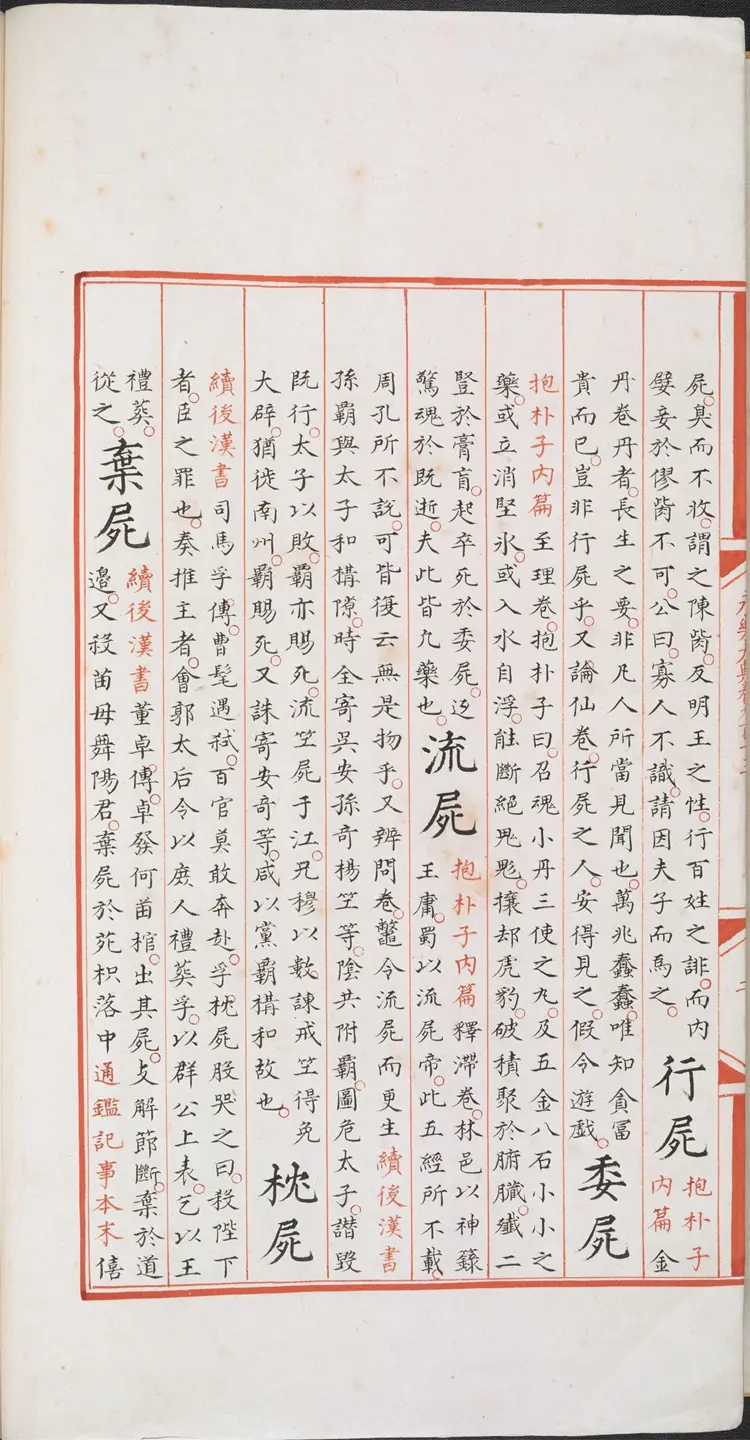 屍。臭而不收。謂之陳胔。反明王之性。行百姓之誹。而内
嬖妾於僇胔不可。公曰。寡人不識。請因夫子而為之。
行屍
抱朴子
内篇金
丹卷丹者。長生之要。非凡人所當見聞也。萬兆蠢蠢。唯知貪冨
貴而已。豈非行屍乎。又論仙卷。行屍之人。安得見之。假令遊戲。
委屍
抱朴子内篇至理卷。抱朴子曰。召魂小丹三使之丸。及五金八石小小之
藥。或立消堅氷。或入水自浮。能斷絕鬼鬽。攘却虎豹。破積聚於腑臟。殲二
豎於膏肓。起卒死於委屍。返
驚魂於既逝。夫此皆凡藥也。
流屍
抱朴子内篇釋滯卷。林邑以神籙
王庸。蜀以流屍帝。此五經所不載。
周孔所不說。可皆復云無是物乎。又辨問卷。鼈令流屍而更生續後漢書
孫霸與太子和構隙。時全寄吳安孫奇楊竺等。陰共附霸。圖危太子。譖毀
既行。太子以敗。霸亦賜死。流竺屍于江。兄穆以數諫戒竺得免
大辟。猶徙南州。霸賜死。又誅寄安奇等。咸以黨霸構和故也。
枕屍
續後漢書司馬孚傳。曹髦遇弒。百官莫敢奔赴。孚枕屍股哭之曰。殺陛下
者。臣之罪也。奏推主者。會郭太后令以庶人禮葬孚。以群公上表。乞以王
禮葬。
從之。
棄屍
續後漢書董卓傳。卓發何苗棺。出其屍。支解節斷。棄於道
邉。又殺苗母舞陽君。棄屍於苑枳落中通鑑記事本末僖